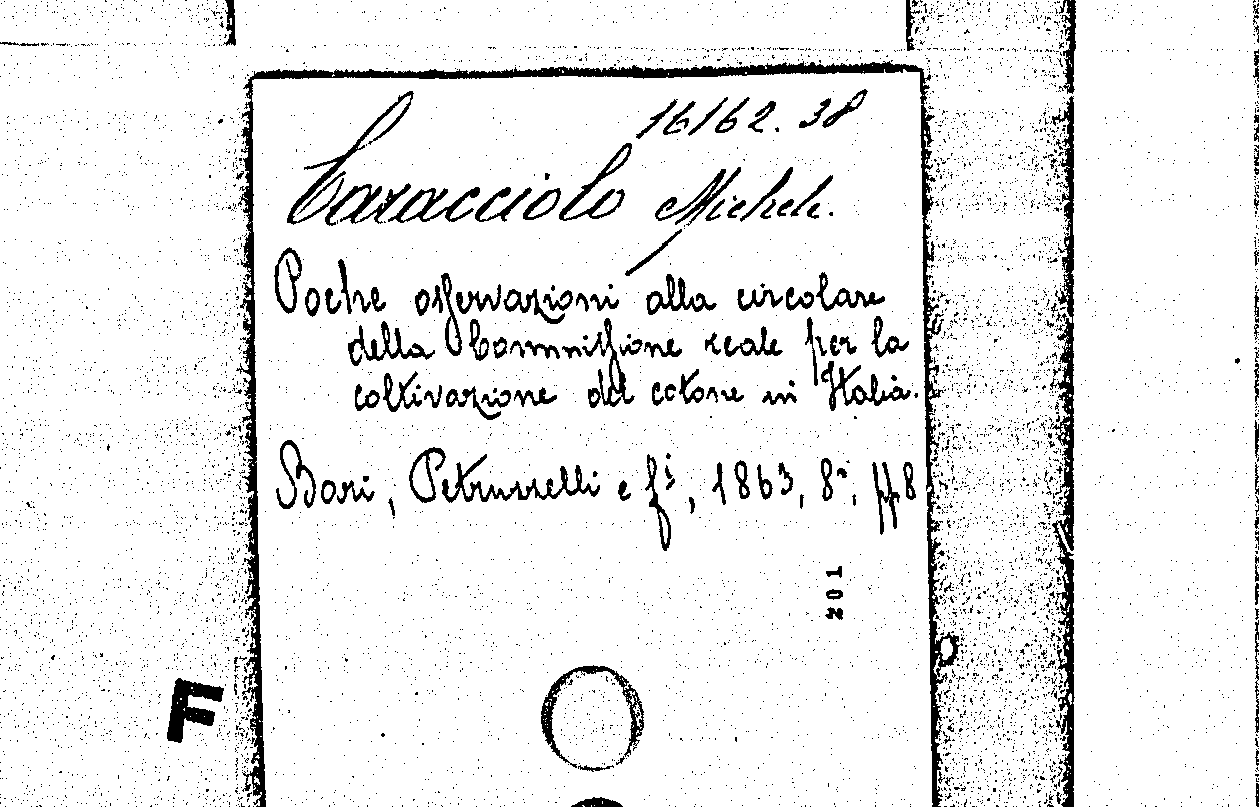 16162.38
Caracciolo Michele.
Poche osservazioni alla circolare
della Commissione reale per la
coltivazione del cotone in Italia.
Bari, Petruzzelli e fi, 1863, 8°, pp 8
201
F